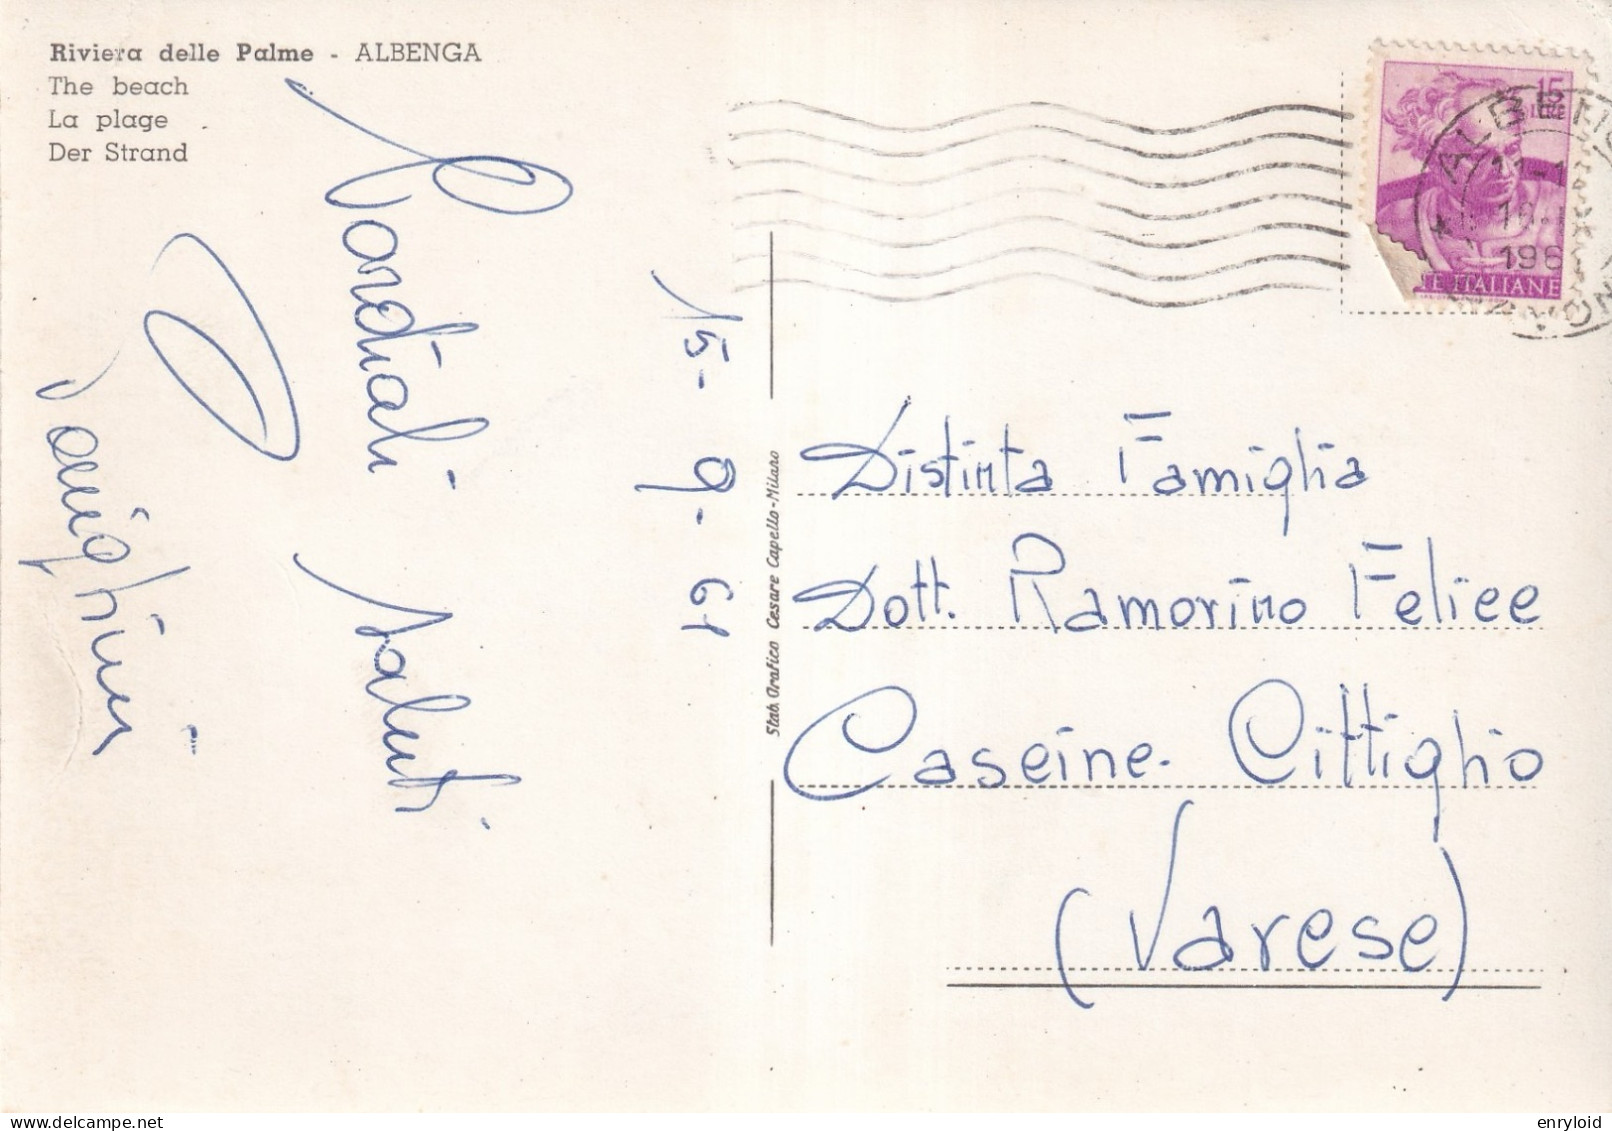 Riviera delle Palme - ALBENGA
The beach
La plage
Der Strand
15 LIRE
ALBENGA
196
TE ITALIANE
15-9-61
Cordiali saluti
Stab. Grafico Cesare Capello - Milano
Distinta Famiglia
Dott. Ramorino Felice
Caseine - Cittiglio
(Varese)
enryloid